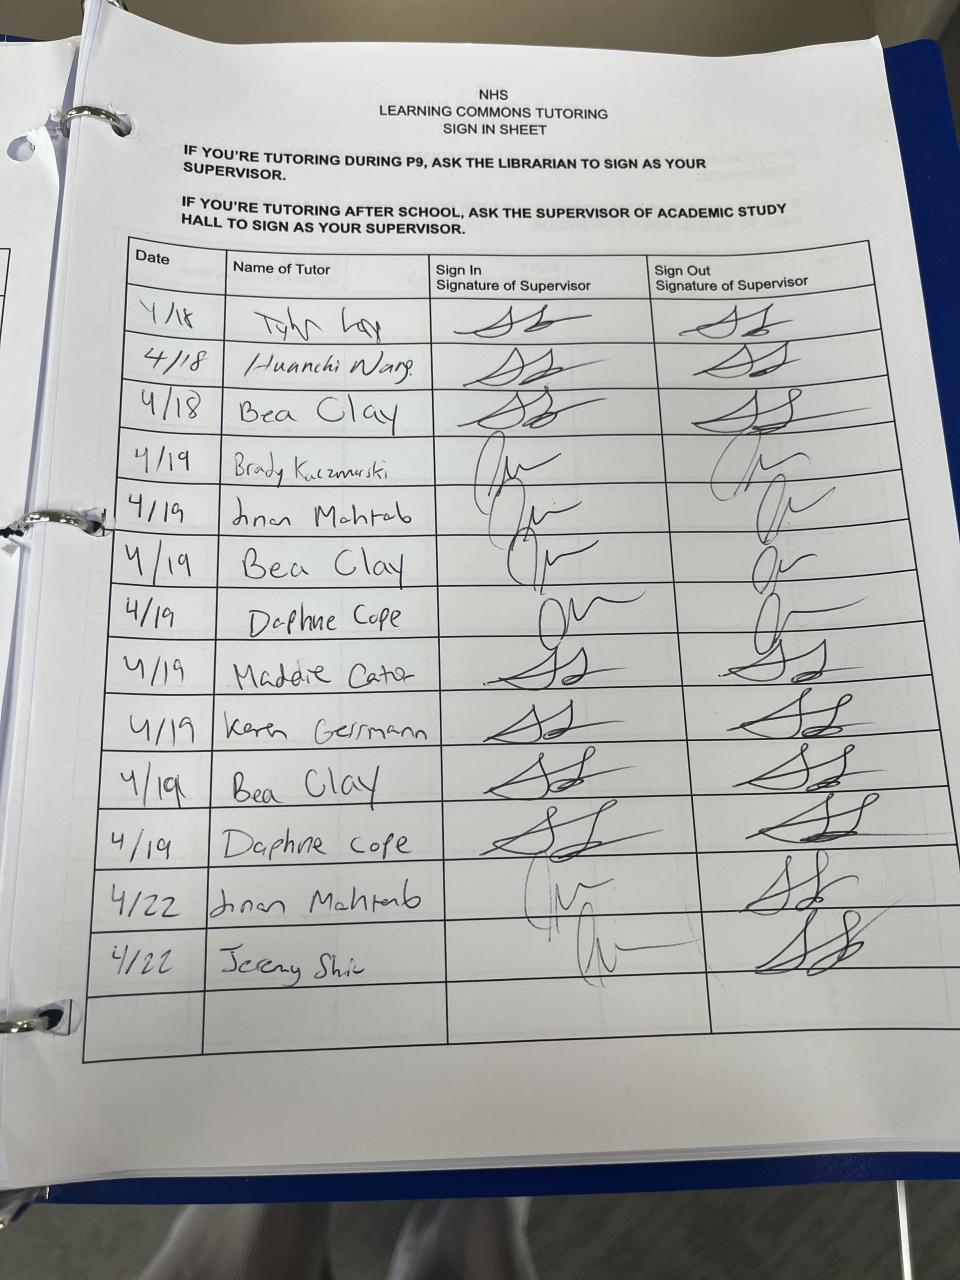 NHS
LEARNING COMMONS TUTORING
SIGN IN SHEET
IF YOU'RE TUTORING DURING P9, ASK THE LIBRARIAN TO SIGN AS YOUR
SUPERVISOR.
IF YOU'RE TUTORING AFTER SCHOOL, ASK THE SUPERVISOR OF ACADEMIC STUDY
HALL TO SIGN AS YOUR SUPERVISOR.
Date Name of Tutor Sign In Sign Out
Signature of Supervisor Signature of Supervisor
4/18
4/18 Huanchi Wang
4/18 Bea Clay
4/19 Brady Kaczmarski
4/19 Mahtab
4/19 Bea Clay
4/19 Daphne Cope
4/19 Maddie Cator
4/19 Keren Gerrmann
4/19 Bea Clay
4/19 Daphne Cope
4/22 Mahtab
4/22 Jeremy